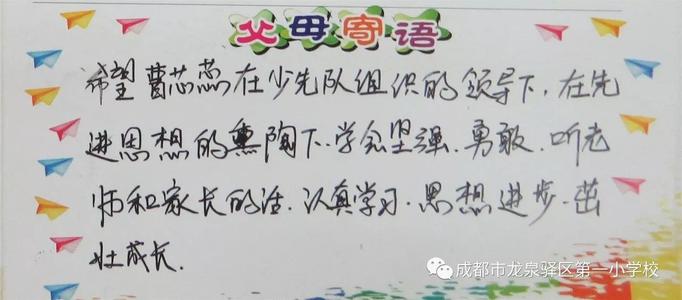 父母寄语
希望曹芯蕊在少先队组织的领导下,在先
进思想的熏陶下.学会坚强、勇敢.听老
师和家长的话.认真学习.思想进步.茁
壮成长.
成都市龙泉驿区第一小学校